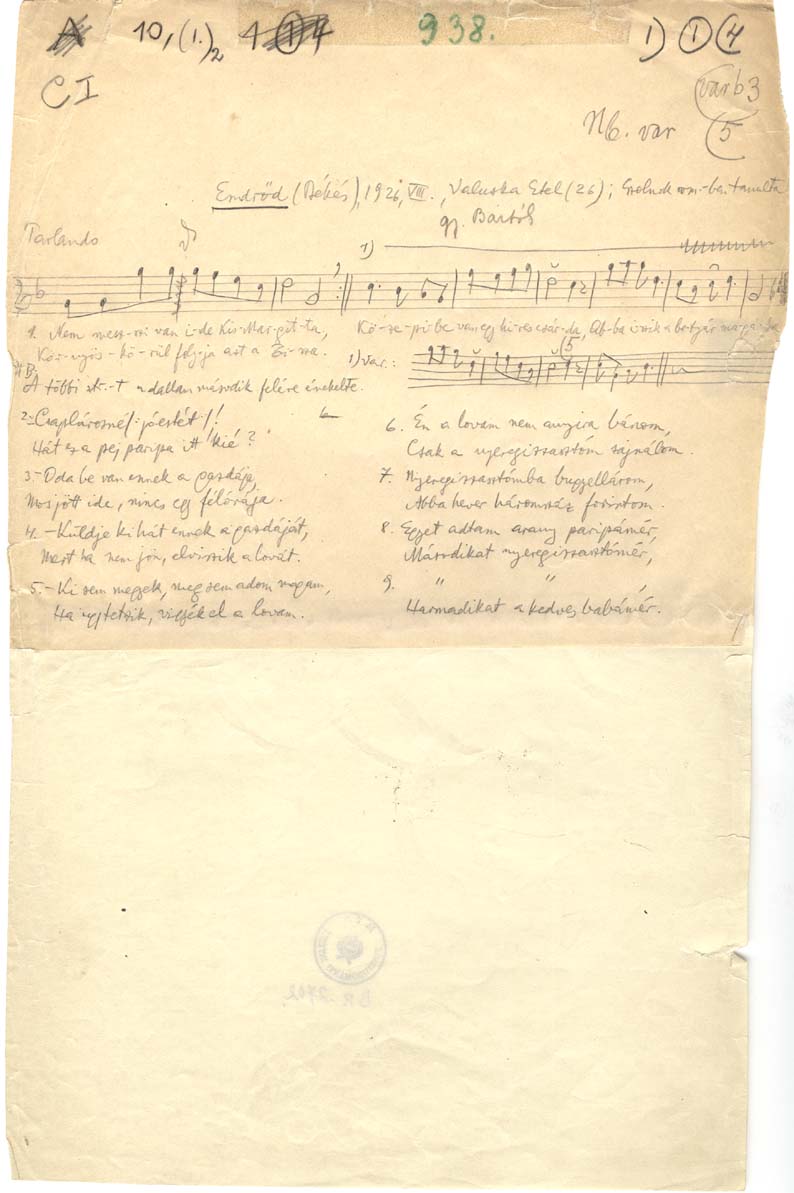 A 10, (1.)2 4 1 4 938. 1) 1 4
C I
var b 3
Nb. var 5
Endrőd (Békés), 1926, VIII., Valuska Etel (26); Szolnok vm.-ban tanulta
gy. Bartók
Parlando
1)
1. Nem mesz-szi van i-de Kis-Mar-git-ta, Kö-ze-pi-be van egy hi-res csár-da, Ab-ba i-szik a be-tyár ma-gá-ba
Kör-nyös-kö-rül foly-ja azt a Ti-sza. 1) var.:
A többi str.-t a dallam második felére énekelte.
2.- Csaplárosné /: jó estét :/!
Hát ez a pej paripa itt kié?
3.- Oda be van ennek a gazdája,
Mos jött ide, nincs egy félórája.
4. - Küldje ki hát ennek a gazdáját,
Mert ha nem jön, elviszik a lovát.
5.- Ki sem megyek, meg sem adom magam,
Ha ugy tetszik, vigyék el a lovam.
6. Én a lovam nem annyira bánom,
Csak a nyeregszerszám sajnálom.
7. Nyeregszerszámba bugyellárom,
Abba hever háromszáz forintom.
8. Egyet adtam arany paripámér,
Másodikat nyeregszerszámér,
9. " " ,
Harmadikat a kedves babámér.